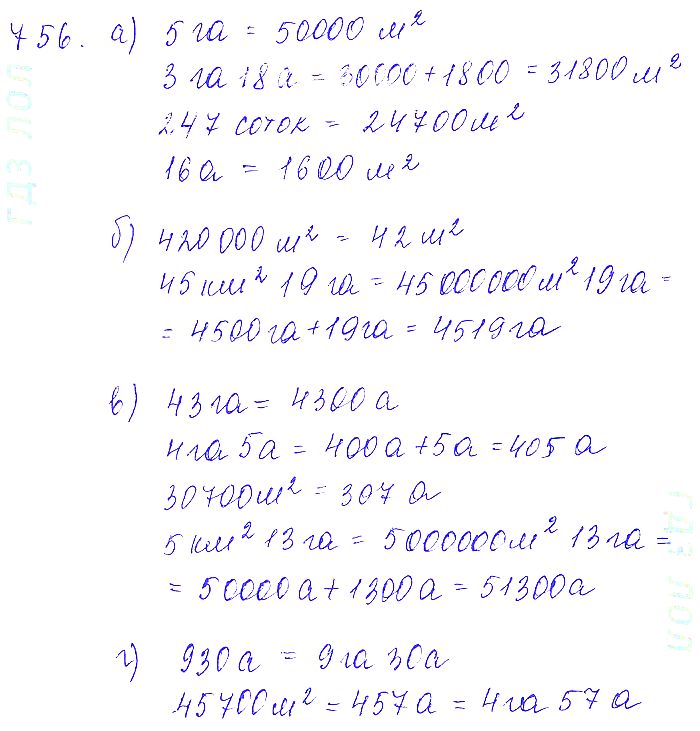 756. а) 5 га = 50000 м²
3 га 18 а = 30000 + 1800 = 31800 м²
247 соток = 24700 м²
16 а = 1600 м²
б) 420 000 м² = 42 м²
45 км² 19 га = 45 000 000 м² 19 га =
= 4500 га + 19 га = 4519 га
в) 43 га = 4300 а
4 га 5 а = 400 а + 5 а = 405 а
30700 м² = 307 а
5 км² 13 га = 5000000 м² 13 га =
= 50000 а + 1300 а = 51300 а
г) 930 а = 9 га 30 а
45700 м² = 457 а = 4 га 57 а
гдз лол
гдз лол